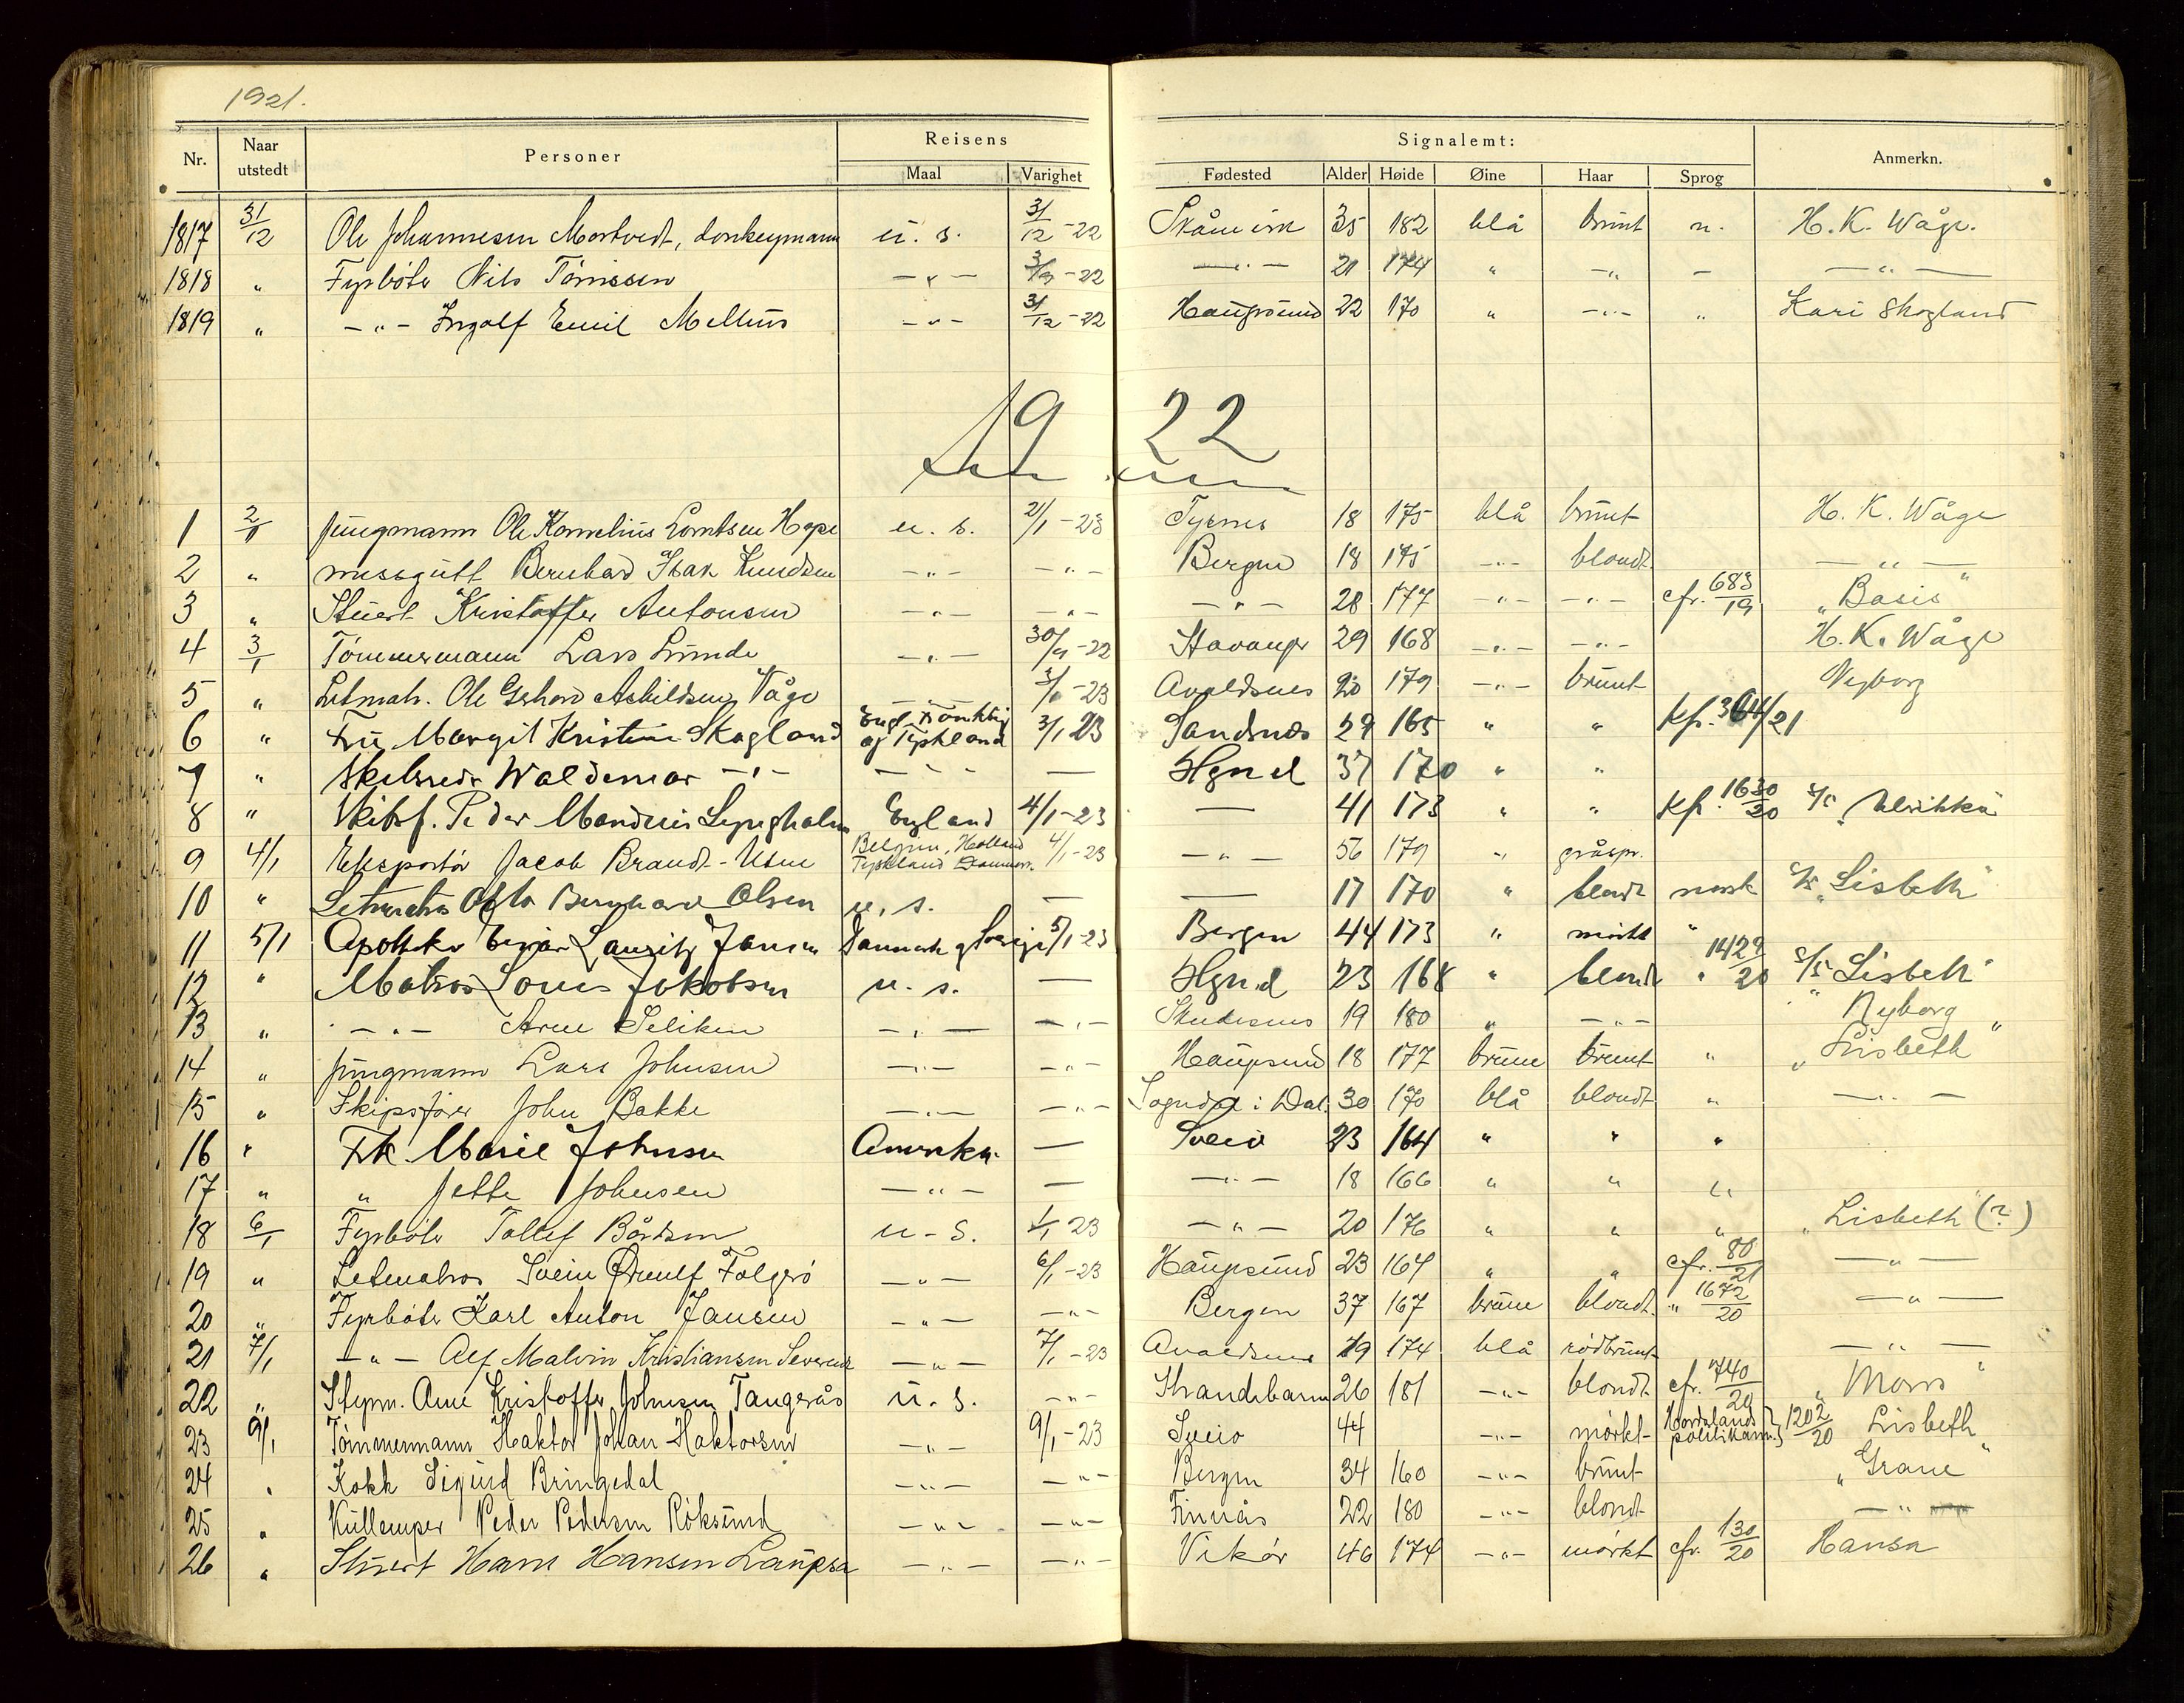 1921.
Nr. Naar utstedt Personer Reisens Maal Varighet Signalemt: Fødested Alder Høide Øine Haar Sprog Anmerkn.
1817 31/12 Ole Johannesen Mortvedt, donkeymann u. s. 31/12-22 Skånevik 35 182 blå brunt n. H. K. Wåge.
1818 " Fyrböter Nils Tönnesen -"- -22 -"- 21 174 " -"- - -"-
1819 " -"- Ingolf Emil Mellins -"- 31/12-22 Haugesund 22 170 " -"- " Kari Skogland
1922
1 2/1 Jungmann Ole Kornelius Lorntsen Hope u. s. 2/1-23 Tysnes 18 175 blå brunt H. K. Wåge
2 " messgutt Bernhard Isak Knudsen -"- -"- Bergen 18 175 -"- blondt -"-
3 " Stuert Kristoffer Antonsen -"- -"- -"- 28 177 -"- -"- cfr. 683/19 "Basis"
4 3/1 Tömmermann Lars Lunde -"- 30/9-22 Stavanger 29 168 -"- -"- H. K. Wåge
5 " Letmatr. Ole Gerhard Askildsen Våge -"- 3/1-23 Avaldsnes 20 179 -"- brunt Nyborg
6 " Fru Margit Kristine Skogland Engl. Frankrig og Tyskland 3/1 23 Sandnes 29 165 " " Kfr. 364/21
7 " Skibsreder Waldemar -"- -"- — Hgnd 37 170 " "
8 " Skibsf. Peder Mandrus Lyngholm England 4/1-23 — 41 173 " " Kfr. 1630/20 s/s "Ulrikka"
9 4/1 Eksportör Jacob Brandt-Usne Belgien, Holland Tyskland Danmark 4/1-23 -"- 56 179 -"- gråspr.
10 " Letmatros Otto Bernhard Olsen u. s. — — 17 170 " blondt norsk s/s "Lisbeth"
11 5/1 Apoteker Einar Lauritz Jansen Danmark og Sverige 5/1-23 Bergen 44 173 " mörkt "
12 " Matros Louis Jakobsen u. s. — Hgnd 23 168 " blondt " 1429/20 s/s Lisbeth"
13 " -"- Arne Seliken -"- -"- Skudesnes 19 180 " -"- "Nyborg"
14 " Jungmann Lars Johnsen -"- -"- Haugesund 18 177 brune brunt " "Lisbeth"
15 " Skipsförer John Bakke -"- -"- Sogndal i Dal. 30 170 blå blondt " -"-
16 " Frk Marie Johnsen Amerika — Sveio 23 164 " " "
17 " " Jette Johnsen -"- — -"- 18 166 " " "
18 6/1 Fyrböter Tollef Bårdsen u-s. 23 -"- 20 176 " " " "Lisbeth (?)
19 " Letmatros Svein Ørnulf Folgerö -"- 6/1-23 Haugesund 23 164 " " cfr. 80/21 -"-
20 " Fyrböter Karl Anton Jansen -"- -"- Bergen 37 167 brune blondt " 1672/20 -"-
21 7/1 -"- Alf Malvin Kristiansen -"- 7/1-23 Avaldsnes 19 174 blå rödbrunt -"-
22 " Styrm. Arne Kristoffer Johnsen Tangerås u. s. -"- Strandebarm 26 181 -"- blondt cfr. 740/20 "Mons"
23 9/1 Tömmermann Haktor Johan Haktorsen -"- 9/1-23 Sveio 44 -"- mörkt Hordalands politikam. 1202/20 Lisbeth"
24 " Kokk Sigurd Bringedal -"- -"- Bergen 34 160 -"- brunt "Grane"
25 " Kullemper Peder Pedersen Röksund -"- -"- Finnås 22 180 -"- blondt -"-
26 " Stuert Hans Hansen Laupsa -"- -"- Vikör 46 174 -"- mörkt cfr. 130/20 Hansa